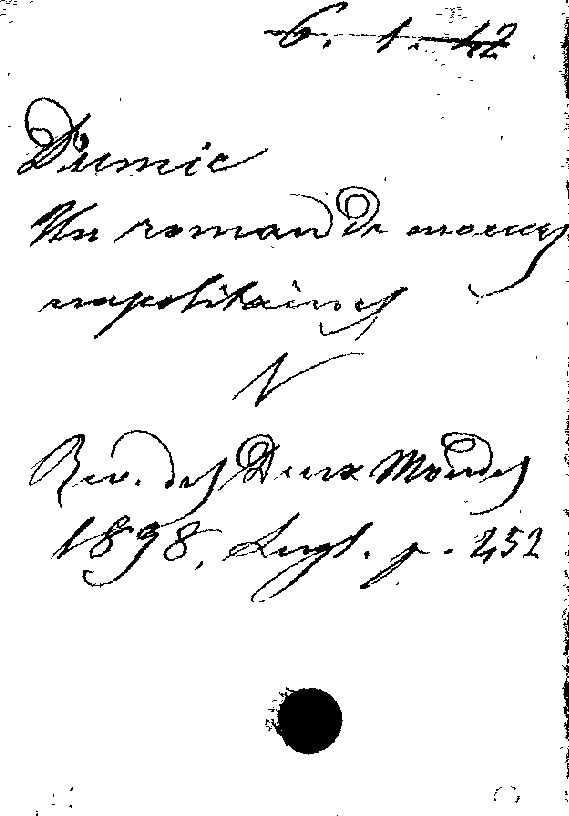 6. 1. 42
Dumic
Un roman de moeurs
napolitaines
Rev. des Deux Mondes
1898, Sept. p. 452